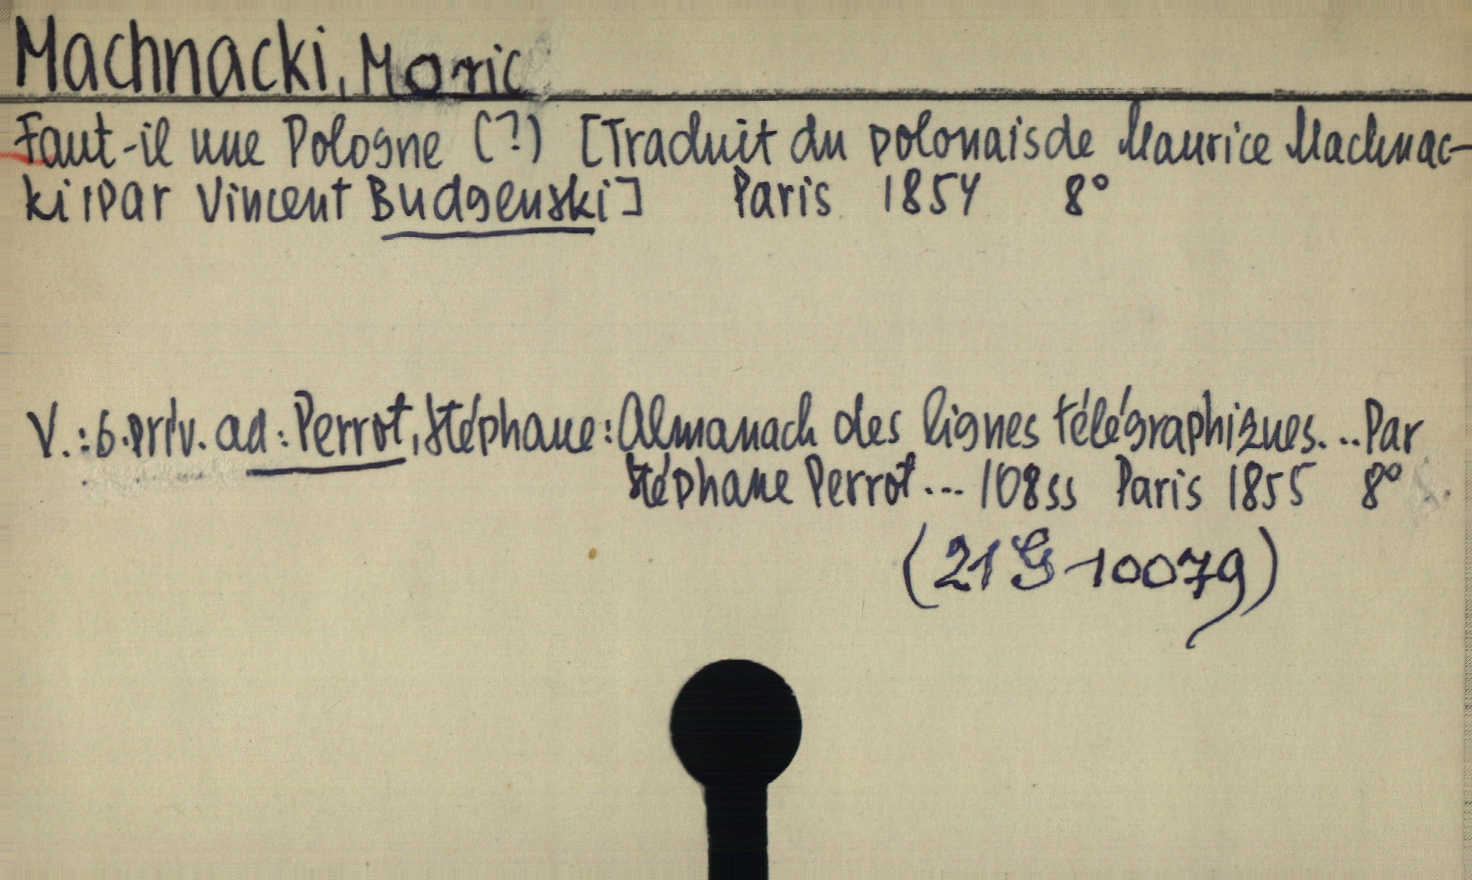 Machnacki, Moric
Faut-il une Pologne (?) [Traduit du polonais de Maurice Machnac-
ki, par Vincent Budzenski] Paris 1854 8°
V.: 6. přív. ad: Perrot, Stéphane: Almanach des lignes télégraphiques... Par
Stéphane Perrot... 108 ss Paris 1855 8°
(21 G 10079)